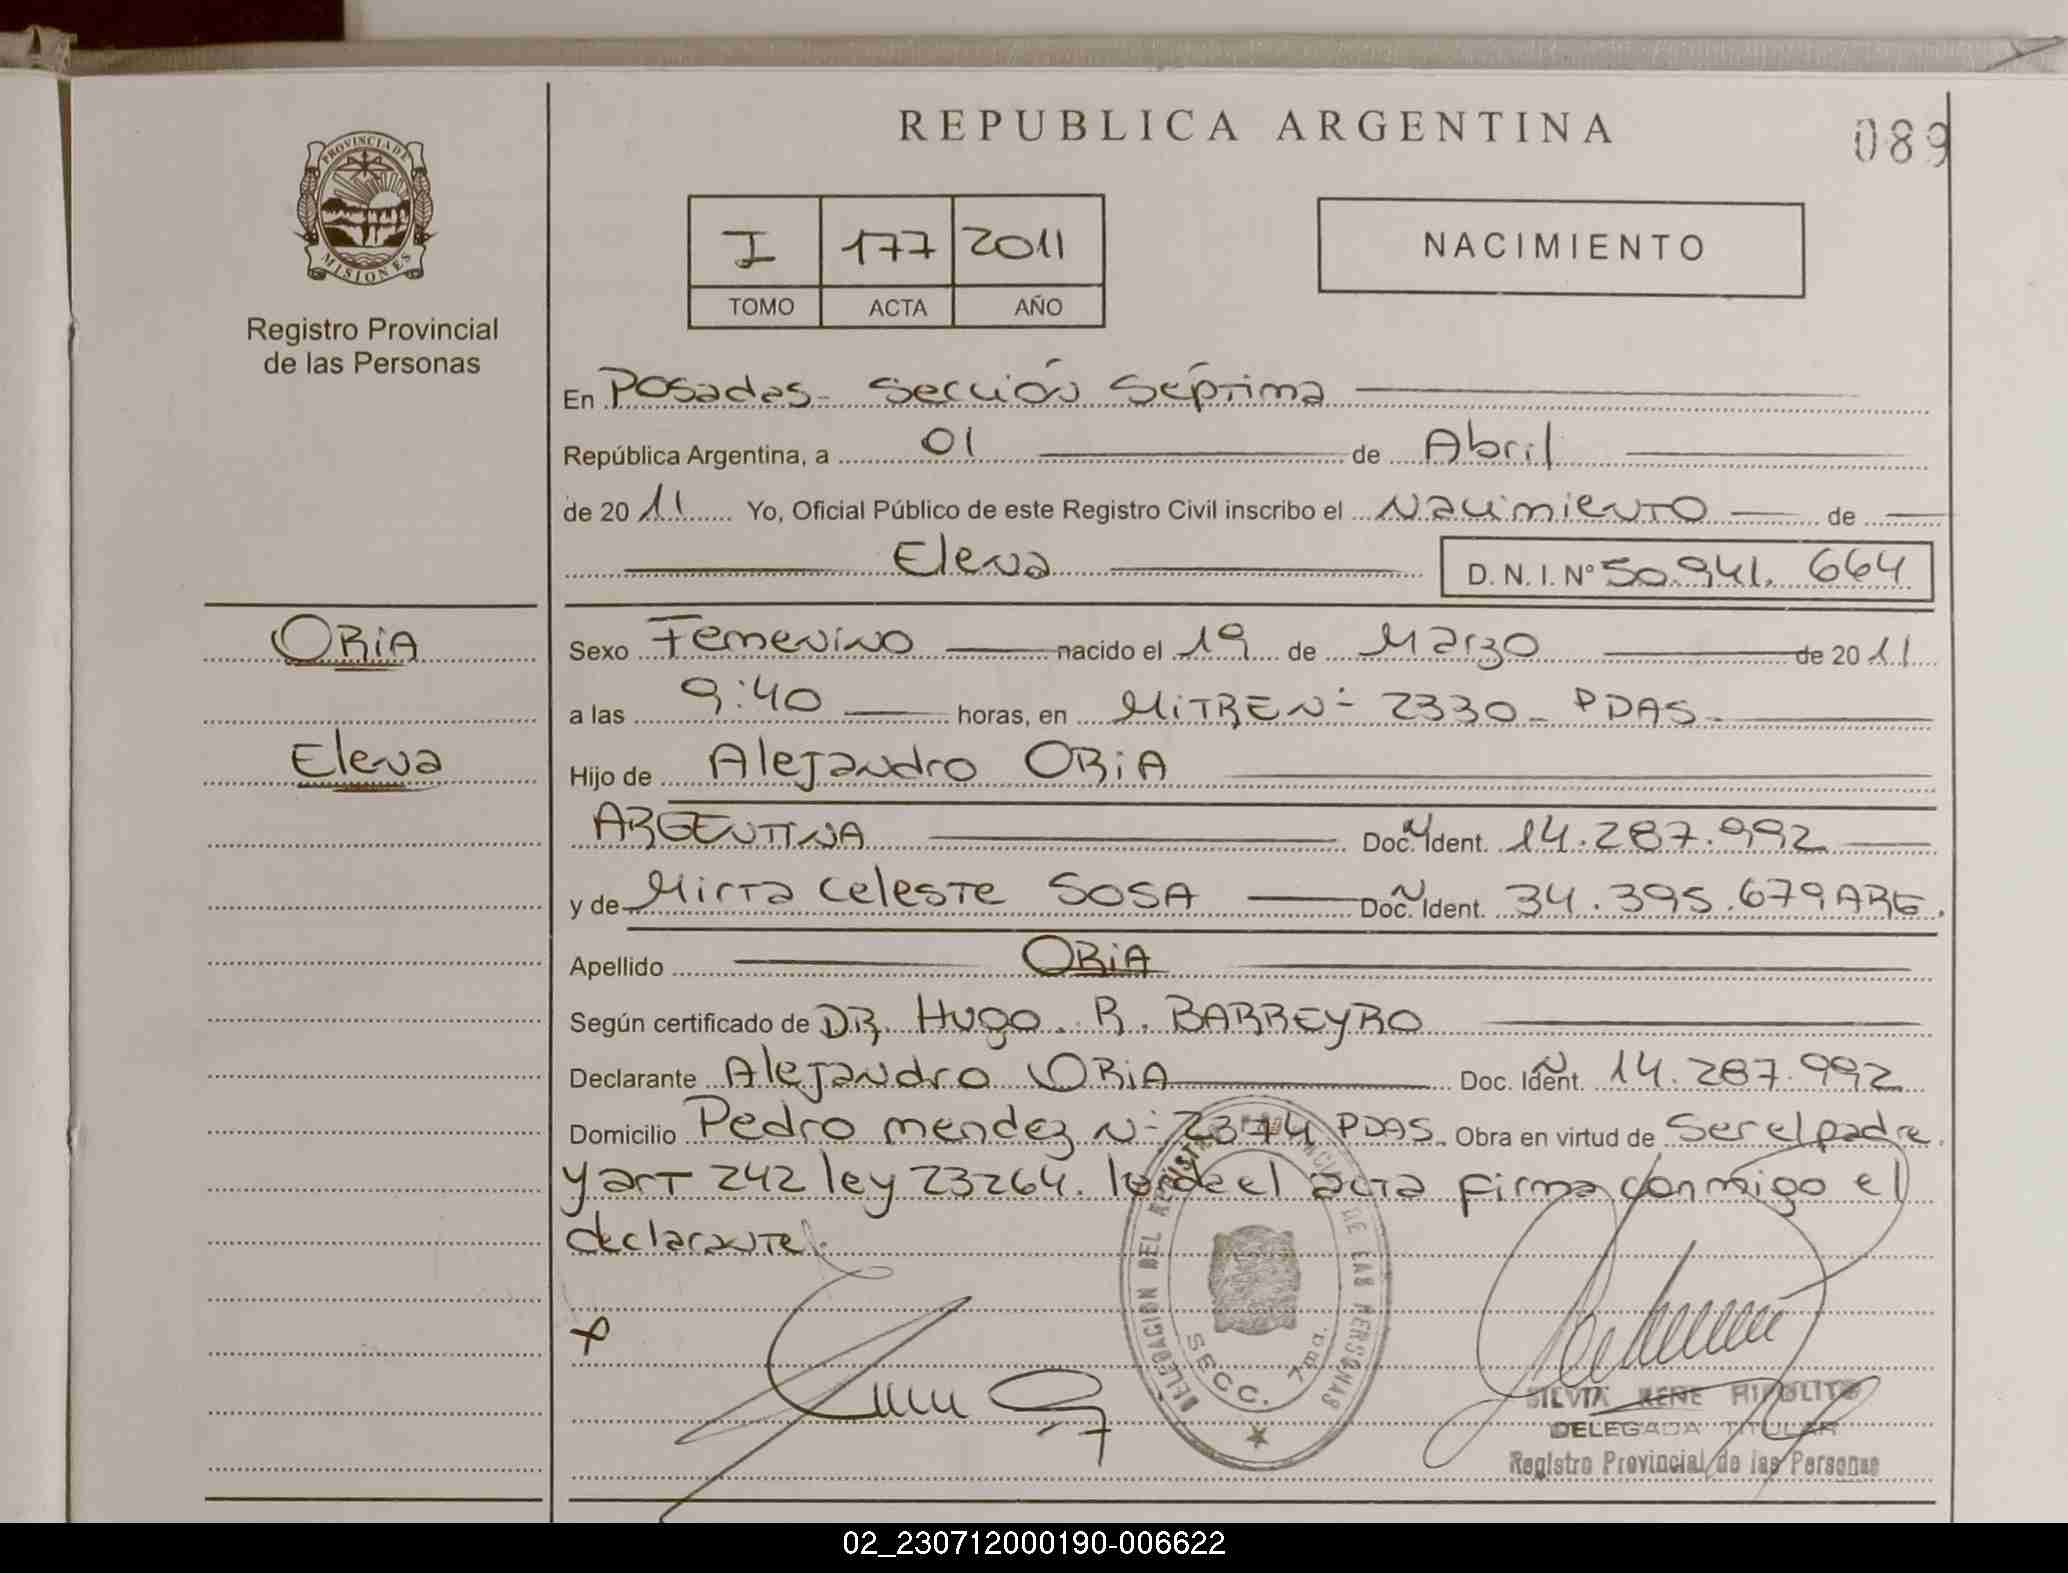 REPUBLICA ARGENTINA
089
PROVINCIA DE MISIONES
Registro Provincial
de las Personas
I 177 2011
TOMO ACTA AÑO
NACIMIENTO
En Posadas - Sección Séptima
República Argentina, a 01 de Abril
de 2011 Yo, Oficial Público de este Registro Civil inscribo el Nacimiento de
Elena D. N. I. Nº 50.941.664
ORiA
Sexo Femenino nacido el 19 de Marzo de 2011
a las 9:40 horas, en MiTRE Nº 2330 - PDAS -
Elena
Hijo de Alejandro ORiA
ARGENTINA Doc. Ident. 14.287.992
y de Mirta Celeste SOSA Doc. Ident. 34.395.679 ARG.
Apellido ORiA
Según certificado de DR. Hugo. R. BARREYRO
Declarante Alejandro ORiA Doc. Ident. 14.287.992
Domicilio Pedro mendez Nº 2374 PDAS. Obra en virtud de Ser el padre
y art 242 ley 23264. leida el acta firma conmigo el
declarante.
DELEGACION DEL REGISTRO PROVINCIAL DE LAS PERSONAS
SECC. 7ma.
SILVIA RENE HIPOLITO
DELEGADA TITULAR
Registro Provincial de las Personas
02_230712000190-006622